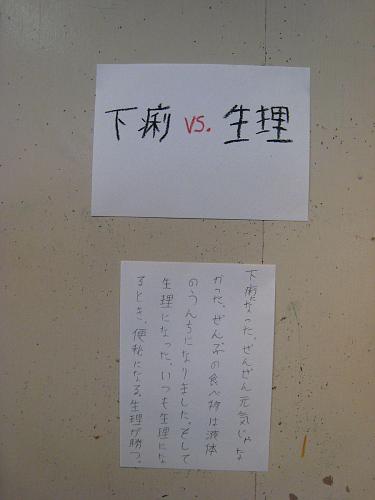 下痢 vs. 生理
下痢だった。ぜんぜん元気じゃな
かった。ぜんぶの食べ物は液体
のうんちになりました。そして
生理になった。いつも生理にな
るとき、便秘になる。生理が勝つ。